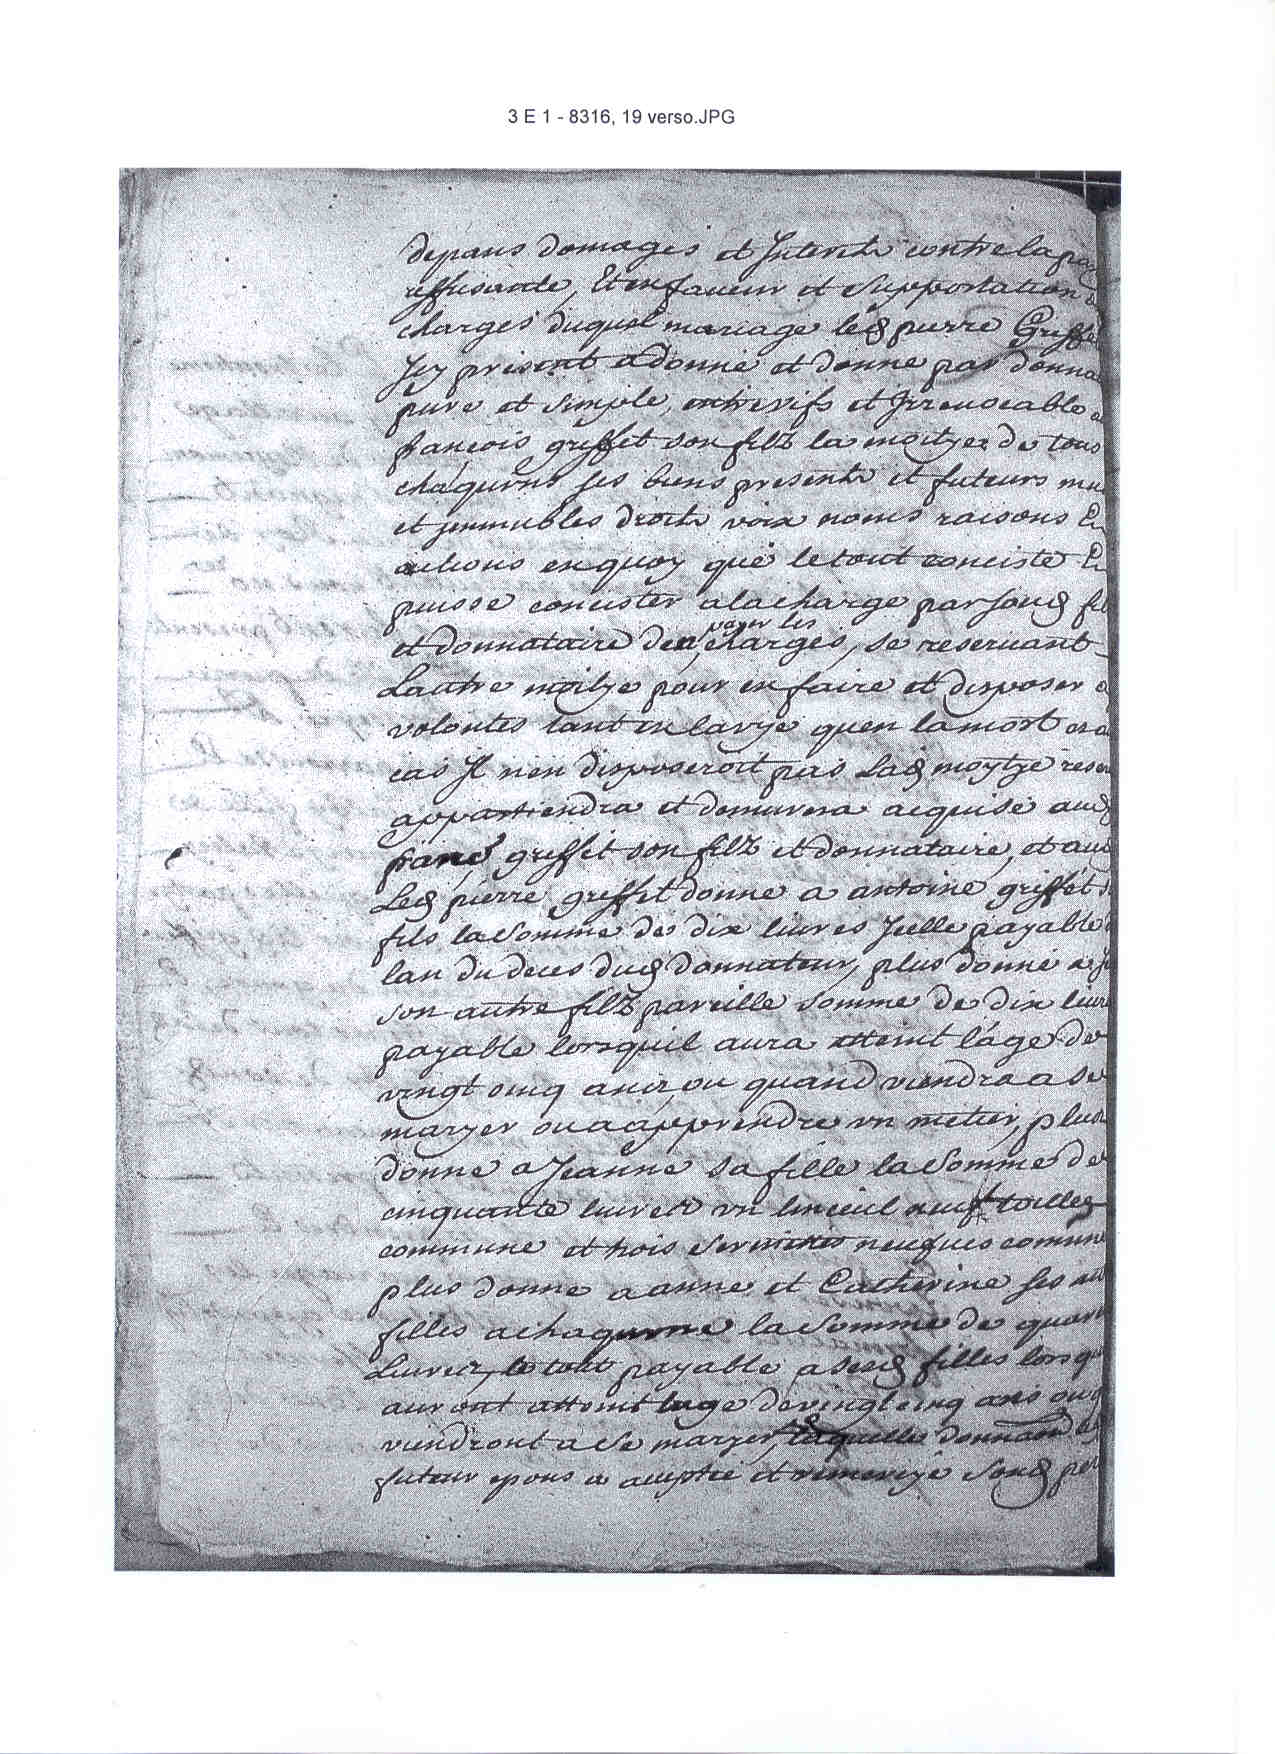 3 E 1 - 8316, 19 verso.JPG
depans domages et Interetz contre la
reffusante, Et en faveur et Supportation
charges duquel mariage led pierre Griffet
Icy present a donne et donne par
pure et simple, entrevifs et Irrevocable a
francois griffet son filz la moityer de tous
chaquuns ses biens presentz et futeurs
et jmmubles droitz voix noms raisons Et
actions en quoy que le tout conciste Et
puisse concister a la charge par sond
et donnataire den payer les charges, se reservant
Lautre moitye pour en faire et disposer a
volontes tant en la vye quen la mort
cas Il nen disposeroit pas Lad moytye
appartiendra et demurera acquise aud
franc griffet son filz et donnataire, et
Led pierre griffet donne a antoine griffet
fils la Somme de dix livres Icelle payable
lan du deces dud donnateur, plus donne a
son autre filz pareille somme de dix
payable lorsquil aura atteint lage de
vingt cinq ans, ou quand viendra a se
maryer ou a apprendre un metier, plus
donne a Jeanne sa fille la Somme de
cinquante livres un linceul toille
commune et trois serviettes neufves
plus donne a anne et Catherine ses
filles a chaqunne la Somme de
Livres, le tout payable a sesd filles
auront atteint lage de vingt cinq ans
viendront a Se maryer, laquelle
futeur epoux a acceptee et remercye Sond